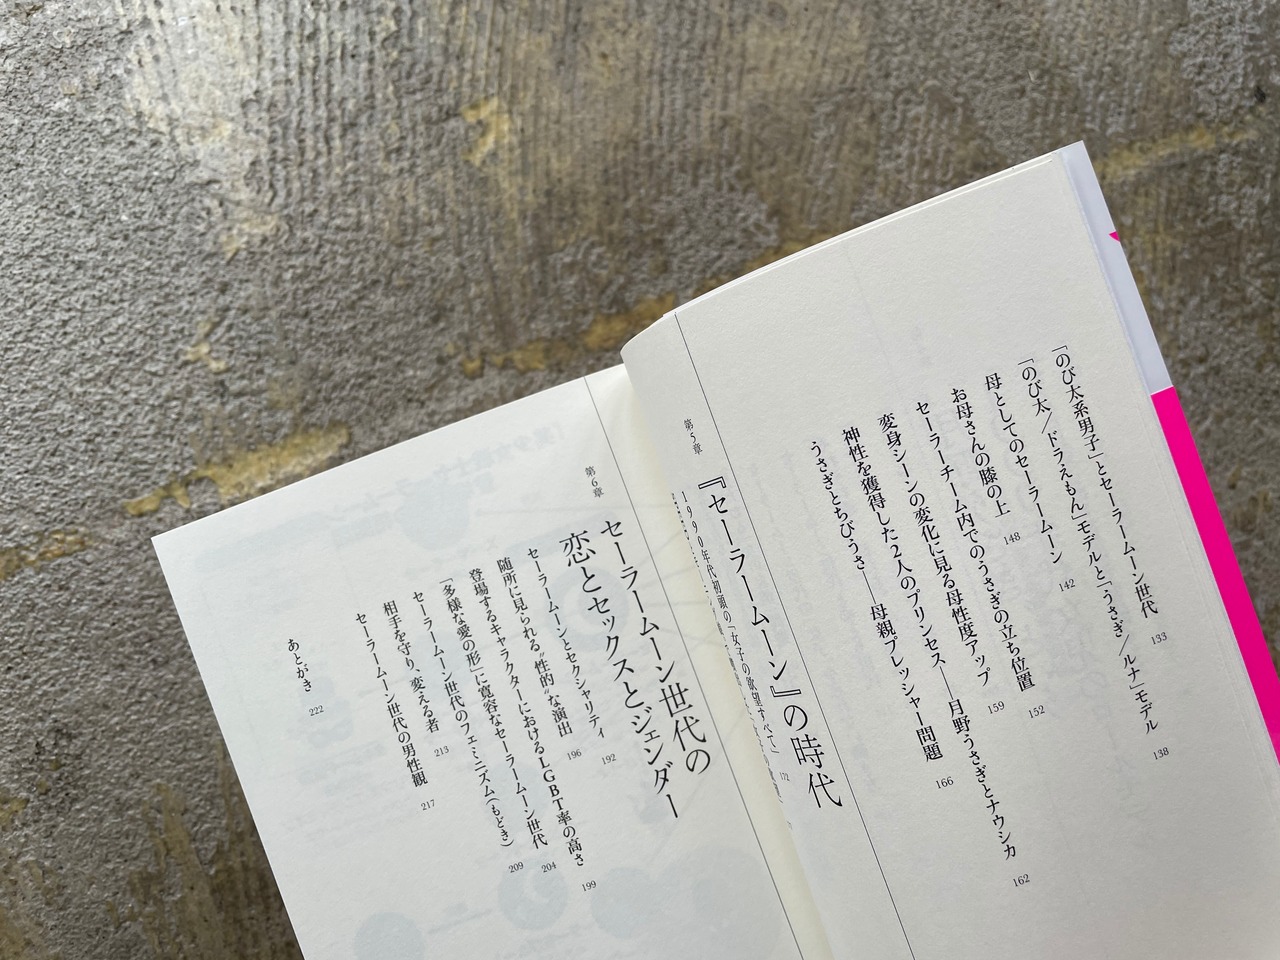 「のび太系男子」とセーラームーン世代 133
「のび太／ドラえもん」モデルと「うさぎ／ルナ」モデル 138
母としてのセーラームーン 142
お母さんの膝の上 148
セーラーチーム内でのうさぎの立ち位置 152
変身シーンの変化に見る母性度アップ 159
神性を獲得した2人のプリンセス――月野うさぎとナウシカ 162
うさぎとちびうさ――母親プレッシャー問題 166
第5章
『セーラームーン』の時代
1990年代初頭の「女子の欲望すべて」 172
第6章
セーラームーン世代の
恋とセックスとジェンダー
セーラームーンとセクシャリティ 192
随所に見られる“性的”な演出 196
登場するキャラクターにおけるLGBT率の高さ 199
「多様な愛の形」に寛容なセーラームーン世代 204
セーラームーン世代のフェミニズム（もどき） 209
相手を守り、変える者 213
セーラームーン世代の男性観 217
あとがき 222